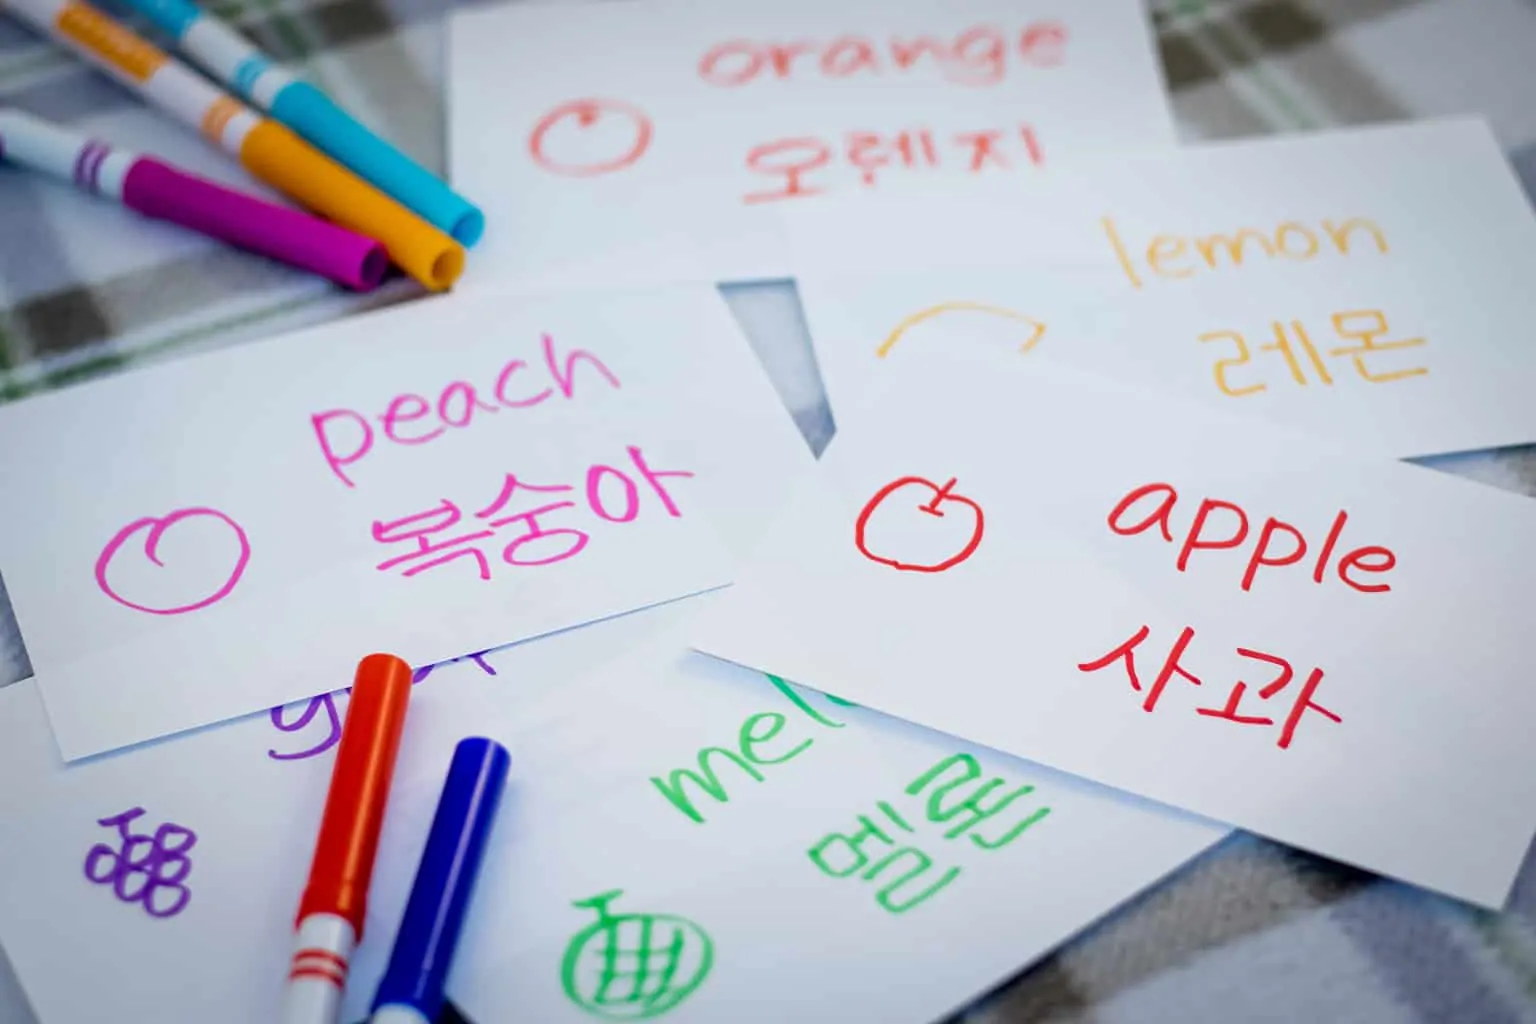 orange
오렌지
lemon
레몬
peach
복숭아
apple
사과
mel
멜론